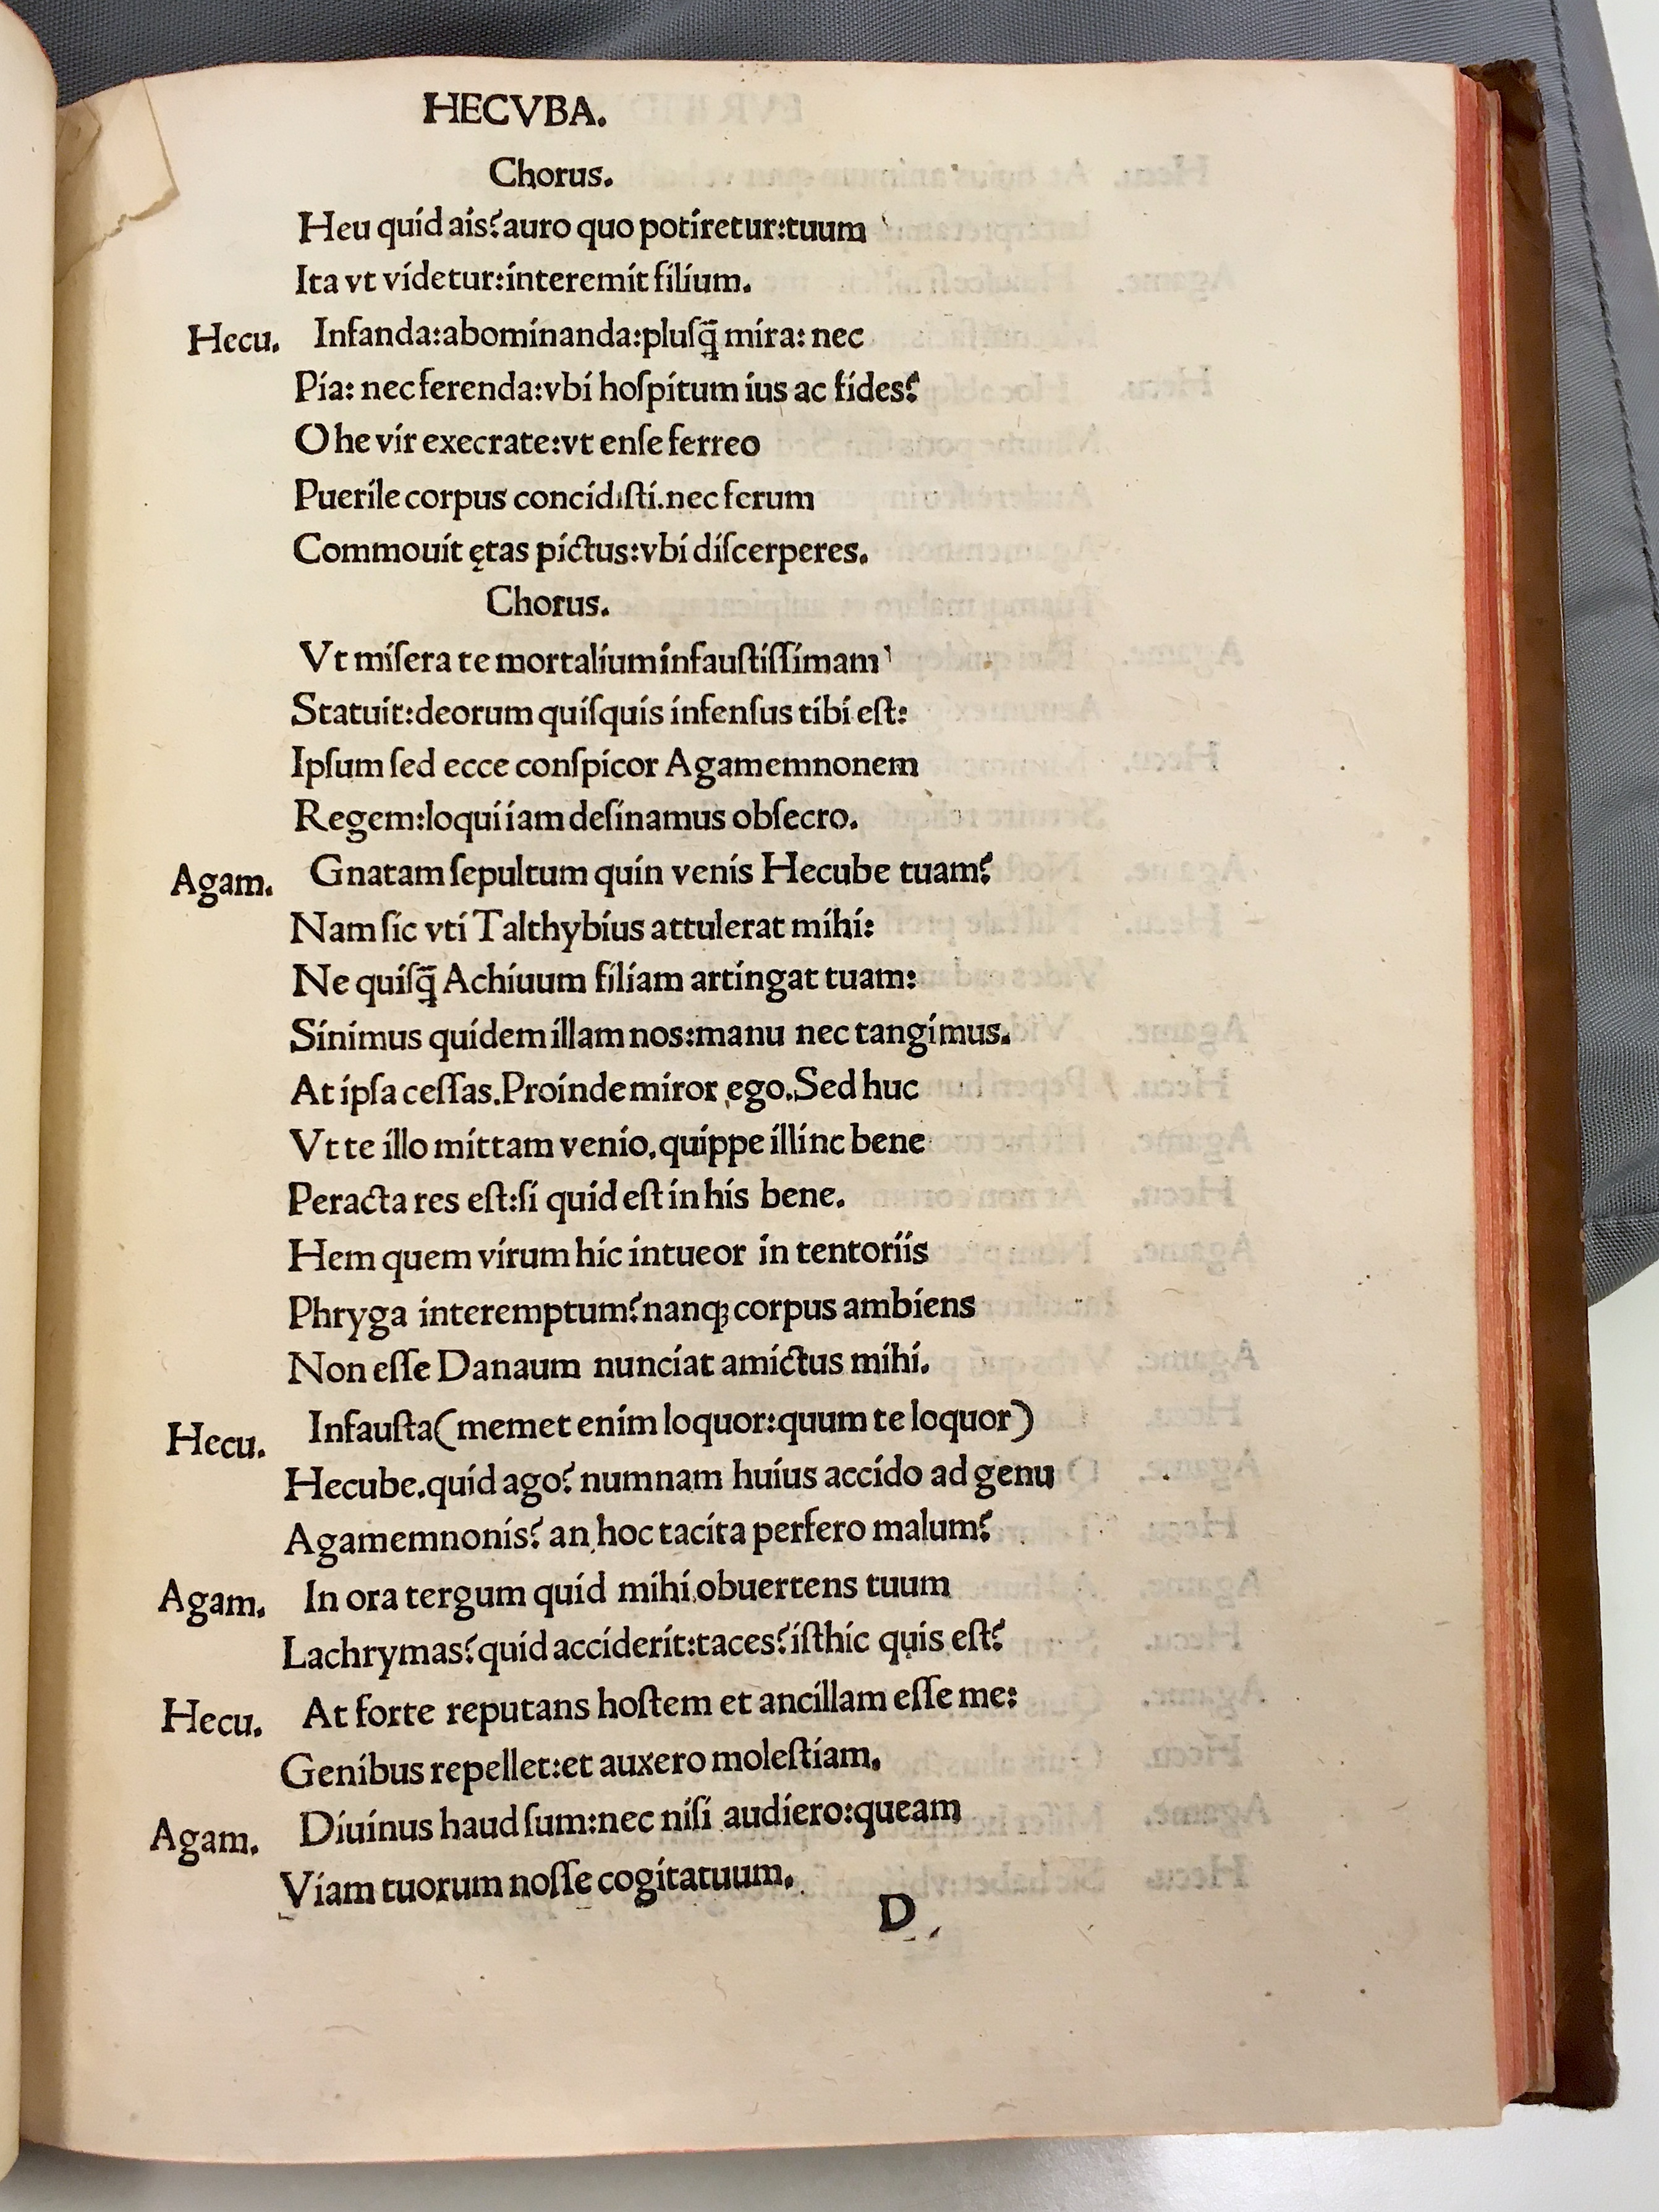 HECVBA.
Chorus.
Heu quid ais? auro quo potiretur:tuum
Ita vt videtur:interemit filium.
Hecu. Infanda:abominanda:pluſq̃ mira: nec
Pia: nec ferenda:vbi hoſpitum ius ac fides?
O he vir execrate:vt enſe ferreo
Puerile corpus concidiſti.nec ferum
Commouit ętas pictus:vbi diſcerperes.
Chorus.
Vt miſera te mortalium infauſtiſſimam
Statuit:deorum quiſquis infenſus tibi eſt:
Ipſum ſed ecce conſpicor Agamemnonem
Regem:loqui iam deſinamus obſecro.
Agam. Gnatam ſepultum quin venis Hecube tuam?
Nam ſic vti Talthybius attulerat mihi:
Ne quiſq̃ Achiuum filiam artingat tuam:
Sinimus quidem illam nos:manu nec tangimus.
At ipſa ceſſas.Proinde miror ego.Sed huc
Vt te illo mittam venio.quippe illinc bene
Peracta res eſt:ſi quid eſt in his bene.
Hem quem virum hic intueor in tentoriis
Phryga interemptum?nanqꝫ corpus ambiens
Non eſſe Danaum nunciat amictus mihi.
Hecu. Infauſta(memet enim loquor:quum te loquor)
Hecube.quid ago? numnam huius accido ad genu
Agamemnonis? an hoc tacita perfero malum?
Agam. In ora tergum quid mihi obuertens tuum
Lachrymas?quid acciderit:taces?iſthic quis eſt?
Hecu. At forte reputans hoſtem et ancillam eſſe me:
Genibus repellet:et auxero moleſtiam.
Agam. Diuinus haud ſum:nec niſi audiero:queam
Viam tuorum noſſe cogitatuum.
D